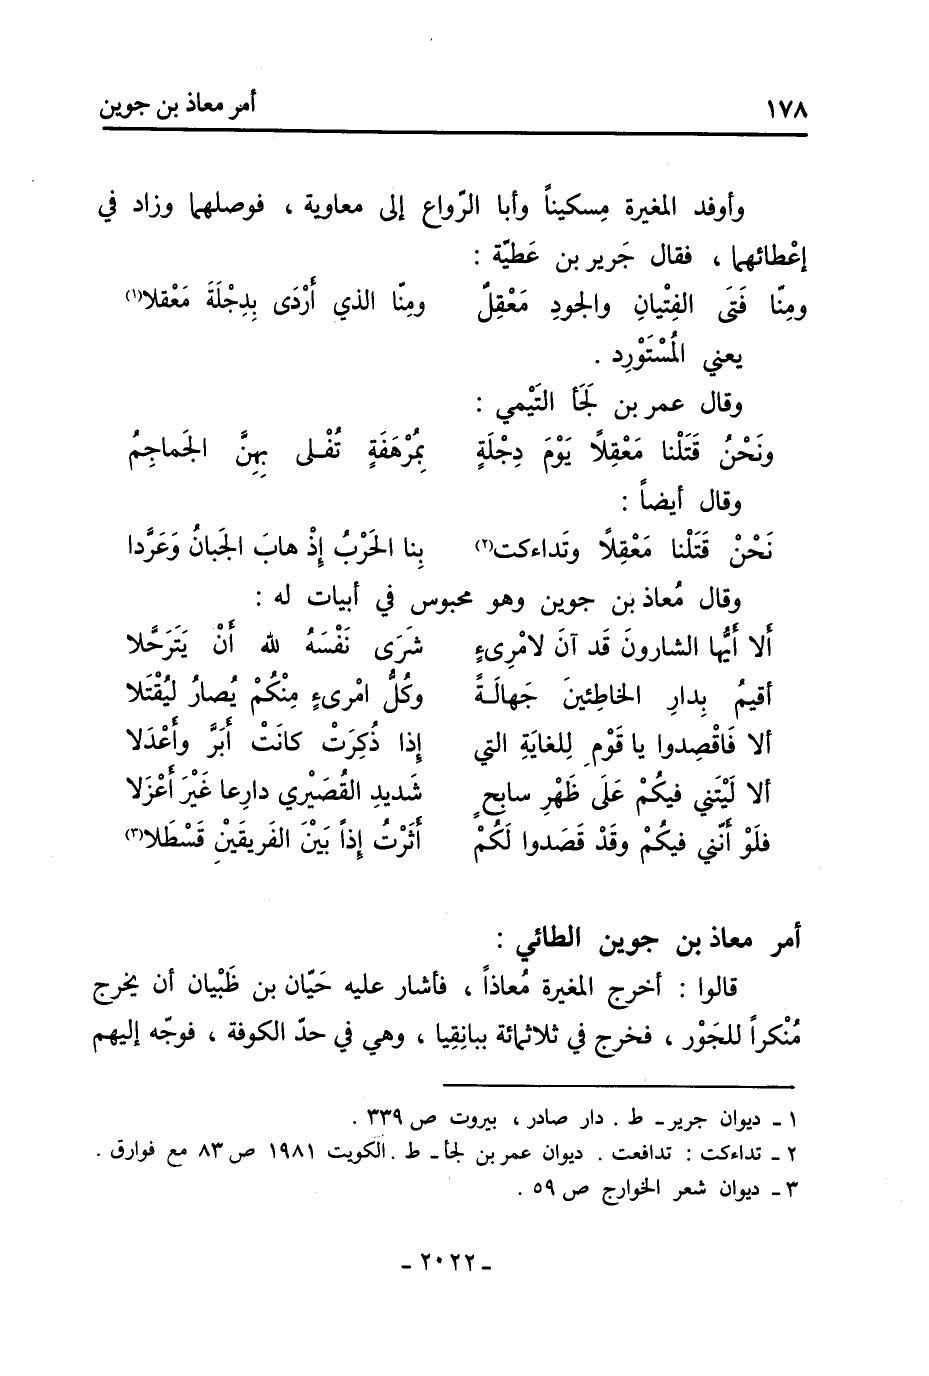 ١٧٨ أمر معاذ بن جوين
وأوفد المغيرة مِسكيناً وأبا الرّواع إلى معاوية ، فوصلهما وزاد في
إعْطائهما ، فقال جَرير بن عَطيّة :
ومِنّا فَتَى الفِتْيانِ والجودِ مَعْقِلٌ ومِنّا الذي أَرْدَى بِدِجْلَةَ مَعْقلا(١)
يعني المُسْتَوْرِد .
وقال عمر بن لَجَأ التَيْمي :
ونَحْنُ قَتَلْنا مَعْقِلًا يَوْمَ دِجْلَةٍ بمُرْهَفَةٍ تُفْـلى بِهِنَّ الجَماجِمُ
وقال أيضاً :
نَحْنْ قَتَلْنا مَعْقِلًا وتَداءكت(٢) بِنا الحَرْبُ إِذْ هابَ الجَبانُ وَعَرَّدا
وقال مُعاذ بن جوين وهو محبوس في أبيات له :
أَلا أَيُّها الشارونَ قَد آنَ لامْرِىءٍ شَرَى نَفْسَهُ لله أَنْ يَتَرَحَّلا
أقيمُ بِدارِ الخاطِئينَ جَهالَـةً وكُلُّ امْرىءٍ مِنْكُمْ يُصارُ ليُقْتَلا
ألا فَاقْصِدوا يا قَوْمِ لِلغايَةِ التي إذا ذُكِرَتْ كانَتْ أَبَرَّ وأَعْدَلا
ألا لَيْتَني فيكُمْ عَلَى ظَهْرِ سابحٍ شَديدِ القُصَيْري دارِعا غَيْرَ أَعْزَلا
فلَوْ أَنّني فيكُمْ وقَدْ قَصَدوا لَكُمْ أَثَرْتُ إِذاً بَيْنَ الفَريقَيْنِ قَسْطَلا(٣)
أمر معاذ بن جوين الطائي :
قالوا : أخرج المغيرة مُعاذاً ، فأشار عليه حَيّان بن ظَبْيان أن يخرج
مُنْكراً للجَوْر ، فخرج في ثلاثمائة ببانِقِيا ، وهي في حدّ الكوفة ، فوجّه إليهم
١ ـ ديوان جرير ـ ط . دار صادر ، بيروت ص ٣٣٩ .
٢ ـ تداءكت : تدافعت . ديوان عمر بن لجأ ـ ط . الكويت ١٩٨١ ص ٨٣ مع فوارق .
٣ ـ ديوان شعر الخوارج ص ٥٩ .
ـ ٢٠٢٢ ـ